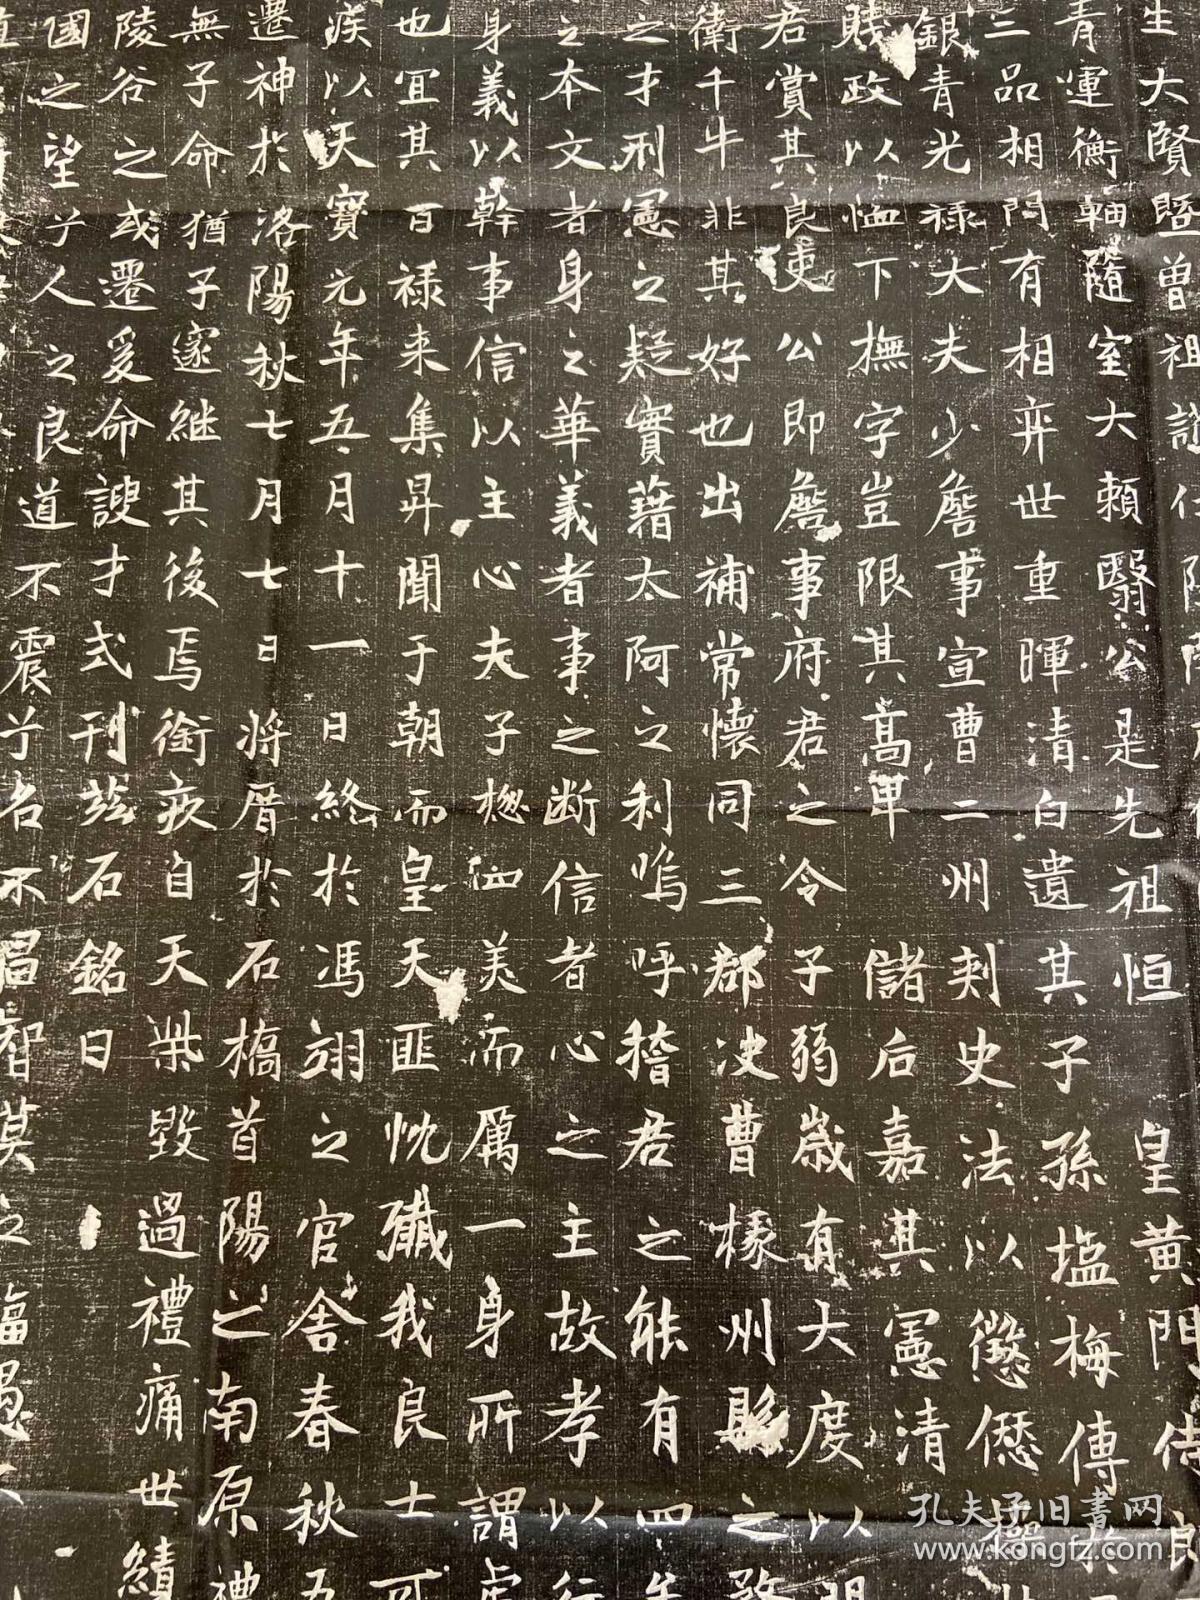 生大賢暨曾祖 皇黃門侍郎
青運衡軸隨室大賴翳公是先祖恒
三品相門有相弈世重暉清白遺其子孫塩梅傳
銀青光祿大夫少詹事宣曹二州刺史法以懲僁
賤政以恤下撫字豈限其高卑 儲后嘉其憲清
君賞其良吏 公即詹事府君之令子弱歲有大度
衛千牛非其好也出補常懷同三郡決曹掾州縣之
之才刑憲之疑實藉太阿之利嗚呼稽君之能有四
之本文者身之華義者事之斷信者心之主故孝以
身義以幹事信以主心夫子惣四美而厲一身所謂
也宜其百祿来集昇聞于朝而皇天匪忱殲我良士可
疾以天寶元年五月十一日終於馮翊之官舍春秋五
遷神於洛陽秋七月七日將厝於石橋首陽之南原禮
無子命猶子遂繼其後焉銜疚自天欒毀過禮痛世績
陵谷之或遷爰命謏才式刊茲石銘曰
國之望兮人之良道不震兮名不
孔夫子旧書网
www.kongfz.com